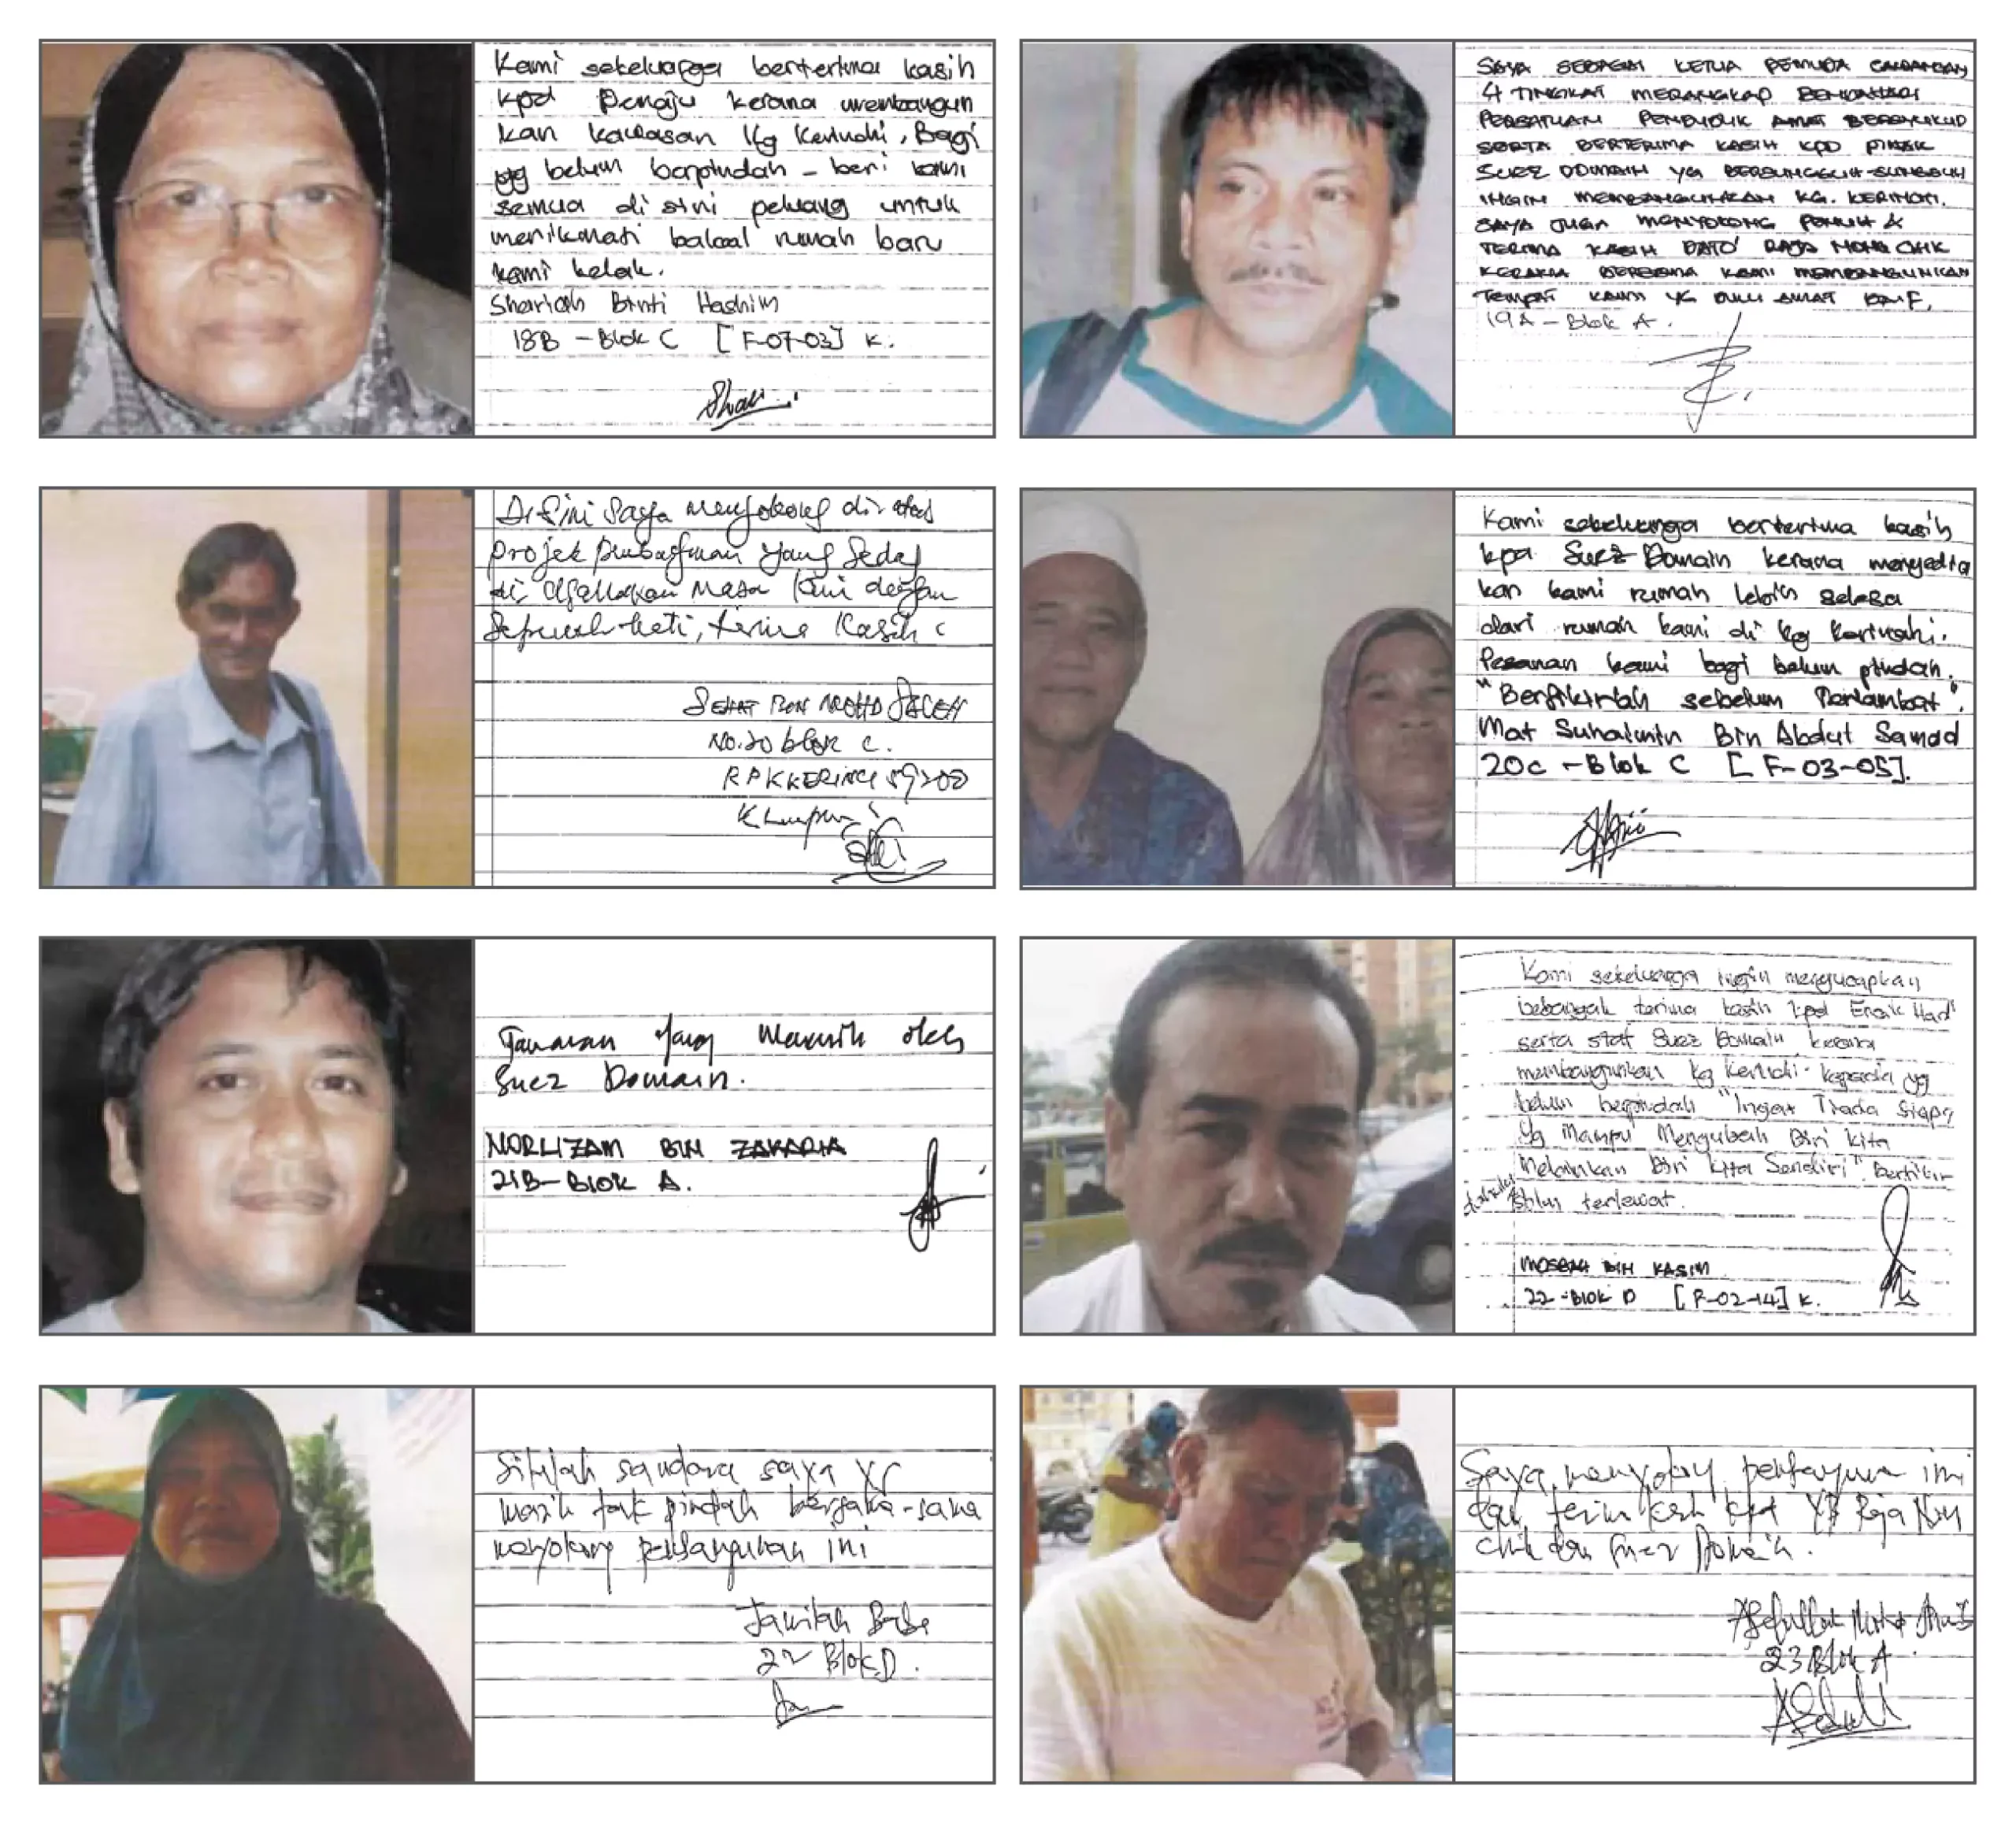 Kami sekeluarga berterima kasih
kpd Penaju kerana membangun
kan kawasan Kg Kerinchi, Bagi
yg belum berpindah - beri kami
semua di sini peluang untuk
menikmati bakal rumah baru
kami kelak.
Shariah Binti Hashim
18B - Blok C [F-07-03] K.
SAYA SEBAGAI KETUA PEMUDA CADANGAN
4 TINGKAT MERANGKAP BENDAHARI
PERSATUAN PENDUDUK AMAT BERSYUKUD
SERTA BERTERIMA KASIH KPD PIHAK
SUEZ DOMAIN YG BERSUNGGUH-SUNGGUH
INGIN MEMBANGUNKAN KG. KERINCHI.
SAYA JUGA MENYOKONG PENUH &
TERIMA KASIH DATO' RAJA NONG CHIK
KERANA BERSAMA KAMI MEMBANGUNKAN
TEMPAT KAMI YG DULU AMAT DAIF.
19A - Blok A.
Di sini saya menyokong di atas
projek pembagunan yang sedag
di masa kini dengan
sepenuh hati, terima kasih
No. 20 blok C.
RPK KERINCI 59200
K Lumpur
Kami sekeluarga berterima kasih
kpd Suez Domain kerana menyedia
kan kami rumah lebih selesa
dari rumah kami di kg Kerinchi.
Pesanan kami bagi belum pindah.
"Berfikirlah sebelum Terlambat".
Mat Suhaimin Bin Abdul Samad
20C - Blok C [F-03-05].
Tawaran yang menarik oleh
Suez Domain.
NORLIZAM BIN ZAKARIA
21B - Blok A.
Kami sekeluarga ingin mengucapkan
bebanyak terima kasih kpd Encik Had
serta staf Suez Domain kerana
membangunkan kg Kerinchi. kepada yg
belum berpindah "Ingat Tiada Siapa
Yg Mampu Mengubah Diri kita
Melainkan Diri Kita Sendiri". Berfikir
sblm terlewat.
MOSBAH BIN KASIM
22 - Blok D [F-02-14] K.
Silalah saudara saya yg
masih tak pindah bersama-sama
menyokong pembangunan ini
Jamilah
22 Blok D.
Saya menyokong pembangunan ini
dan terima kasih kpd YB Raja Nong
Chik dan Suez Domain.
23 Blok A